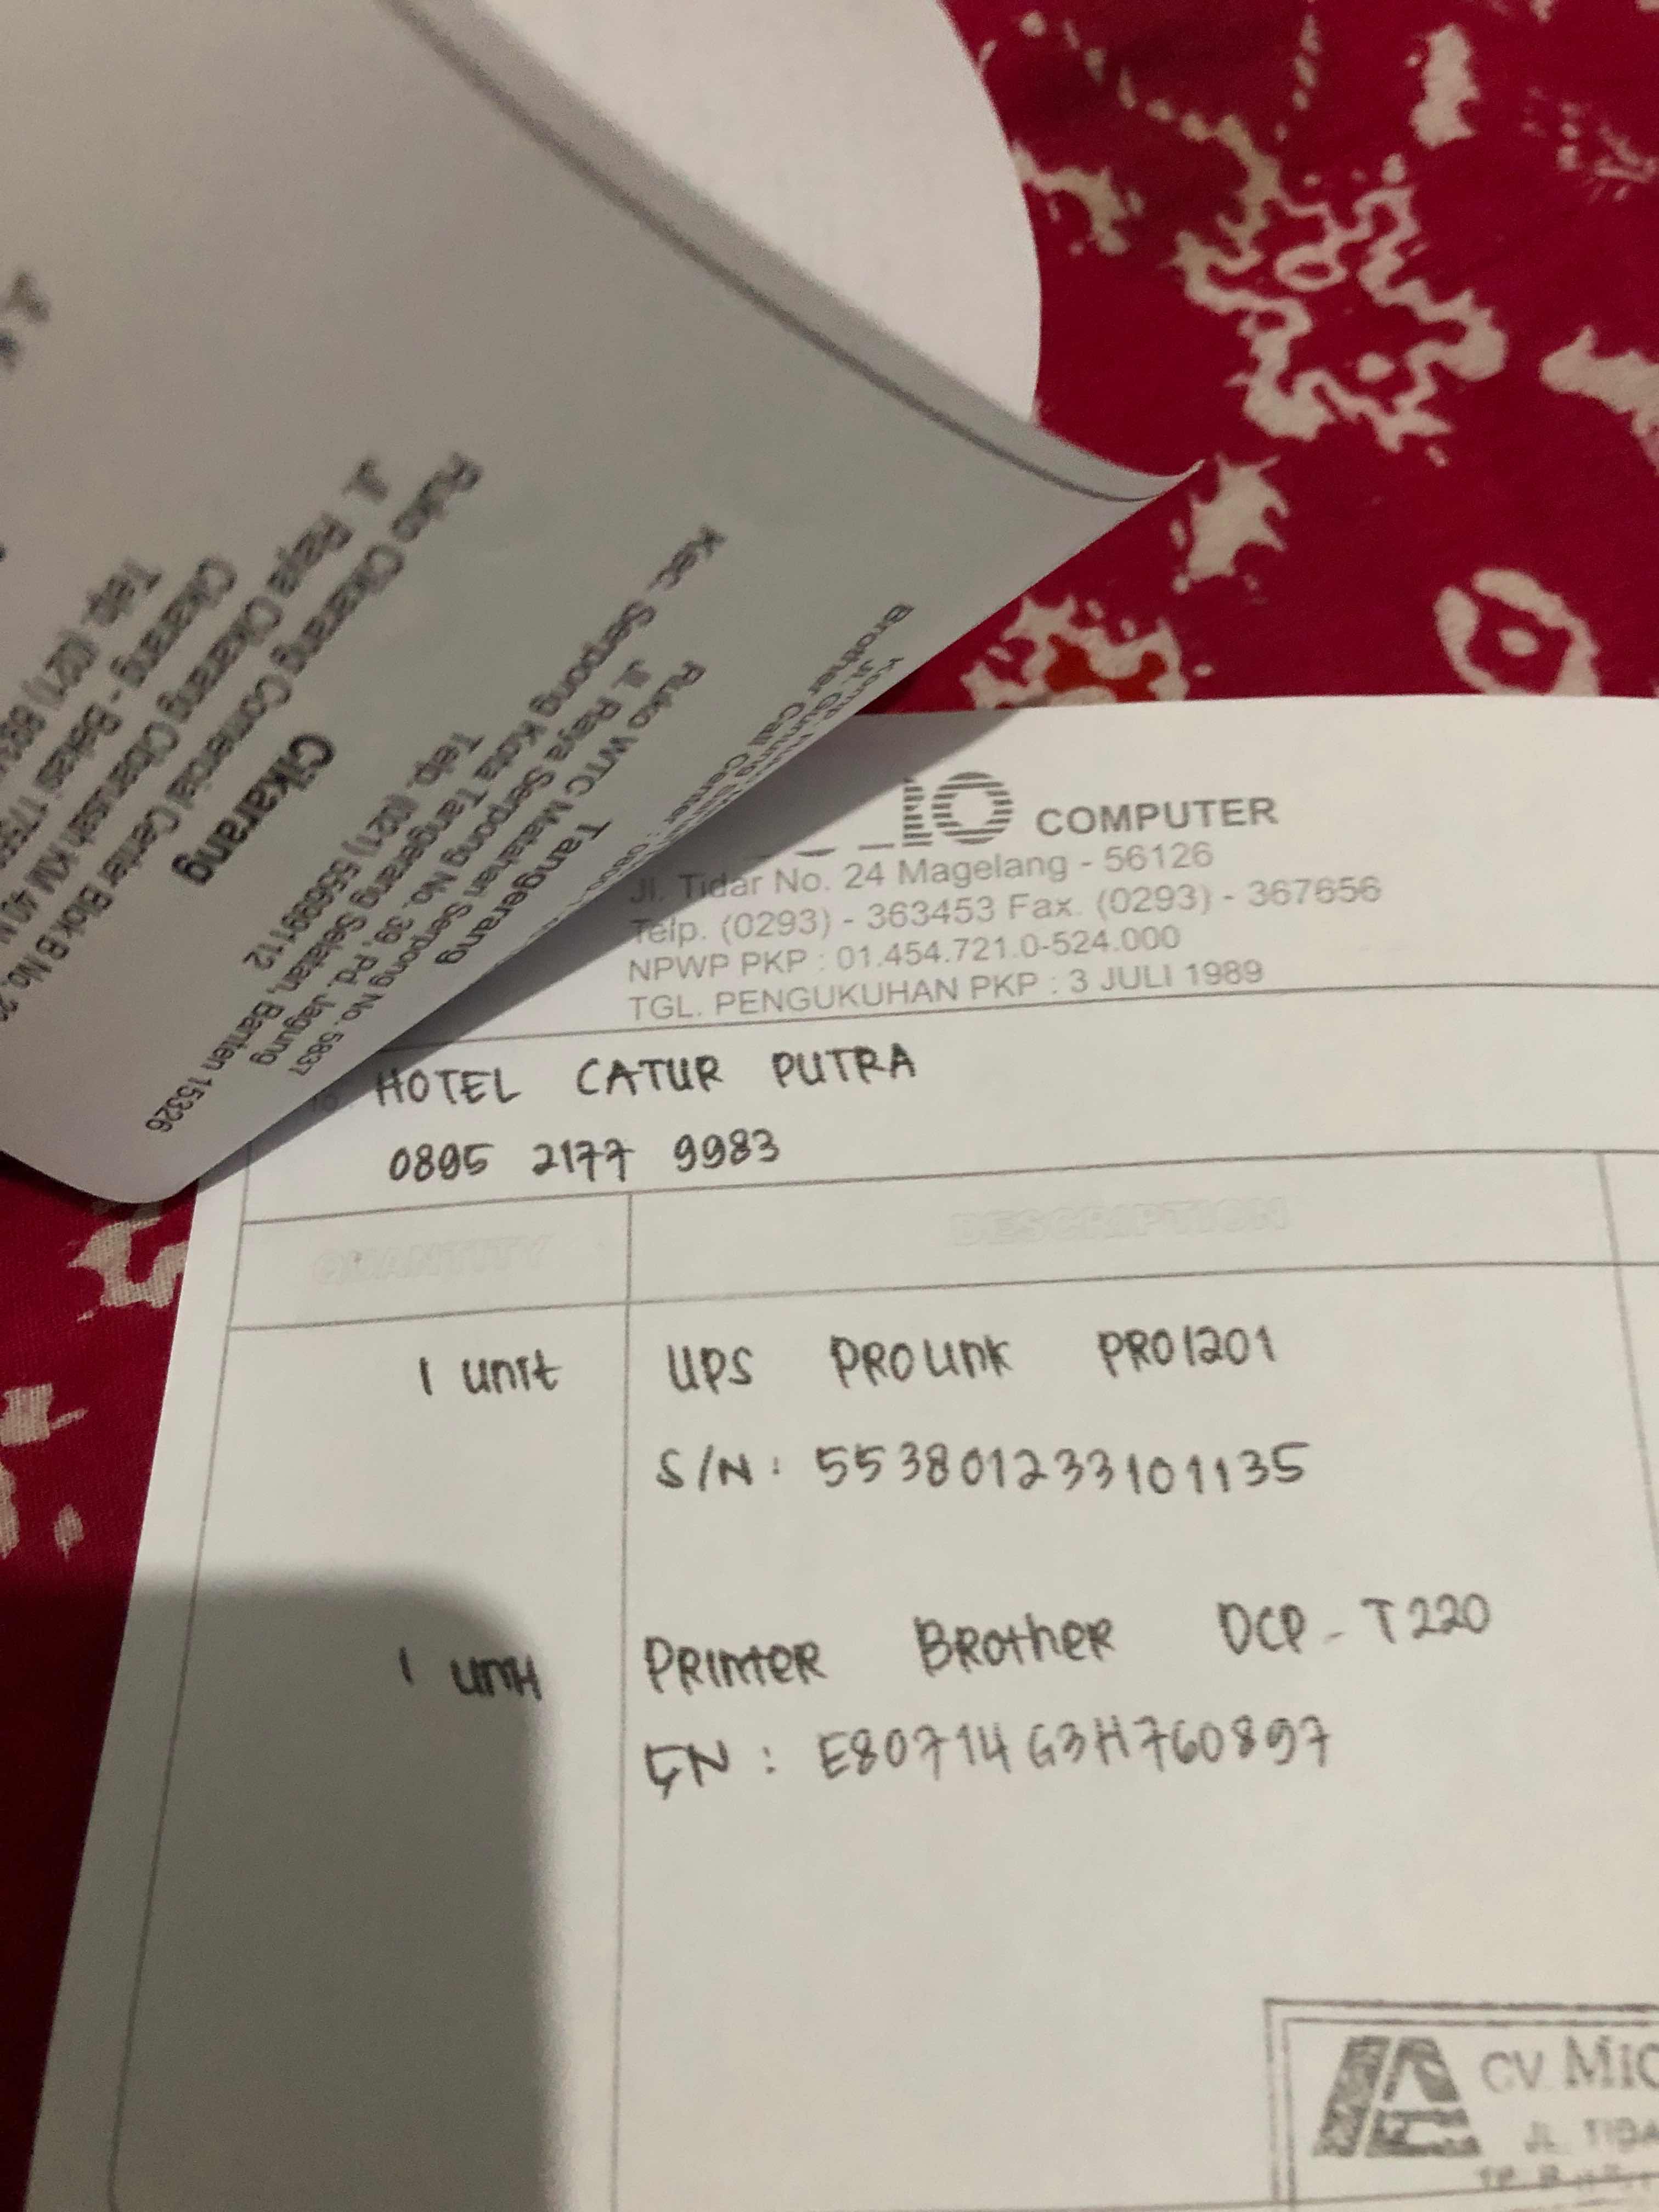 COMPUTER
Jl. Tidar No. 24 Magelang - 56126
Telp. (0293) - 363453 Fax. (0293) - 367656
NPWP PKP : 01.454.721.0-524.000
TGL. PENGUKUHAN PKP : 3 JULI 1989
HOTEL CATUR PUTRA
0895 2177 9983
QUANTITY DESCRIPTION
1 unit UPS PROLINK PRO1201
S/N : 553801233101135
1 unit PRINTER BROTHER DCP - T220
SN : E80714G3H760897
CV. MIC
JL. TIDA
Brother Call Center :
Tangerang
Ruko WTC Matahari Serpong No. 5837
Jl. Raya Serpong No. 39, Pd. Jagung
Kec. Serpong Kota Tangerang Selatan, Banten 15326
Telp. (021) 55689112
Cikarang
Ruko Cikarang Comercial Center Blok B No.
Jl. Raya Cikarang Cibarusah KM 40
Cikarang - Bekasi
Telp. (021)